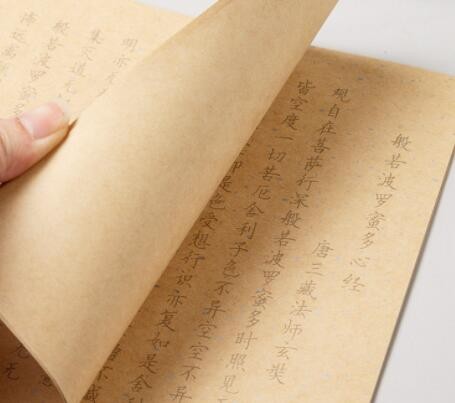 般若波罗蜜多心经
唐三藏法师玄奘
观自在菩萨行深般若波罗蜜多时照见
皆空度一切苦厄舍利子色不异空空不异
即是色受想行识亦复如是舍
明亦无
集灭道无
般若波罗蜜多